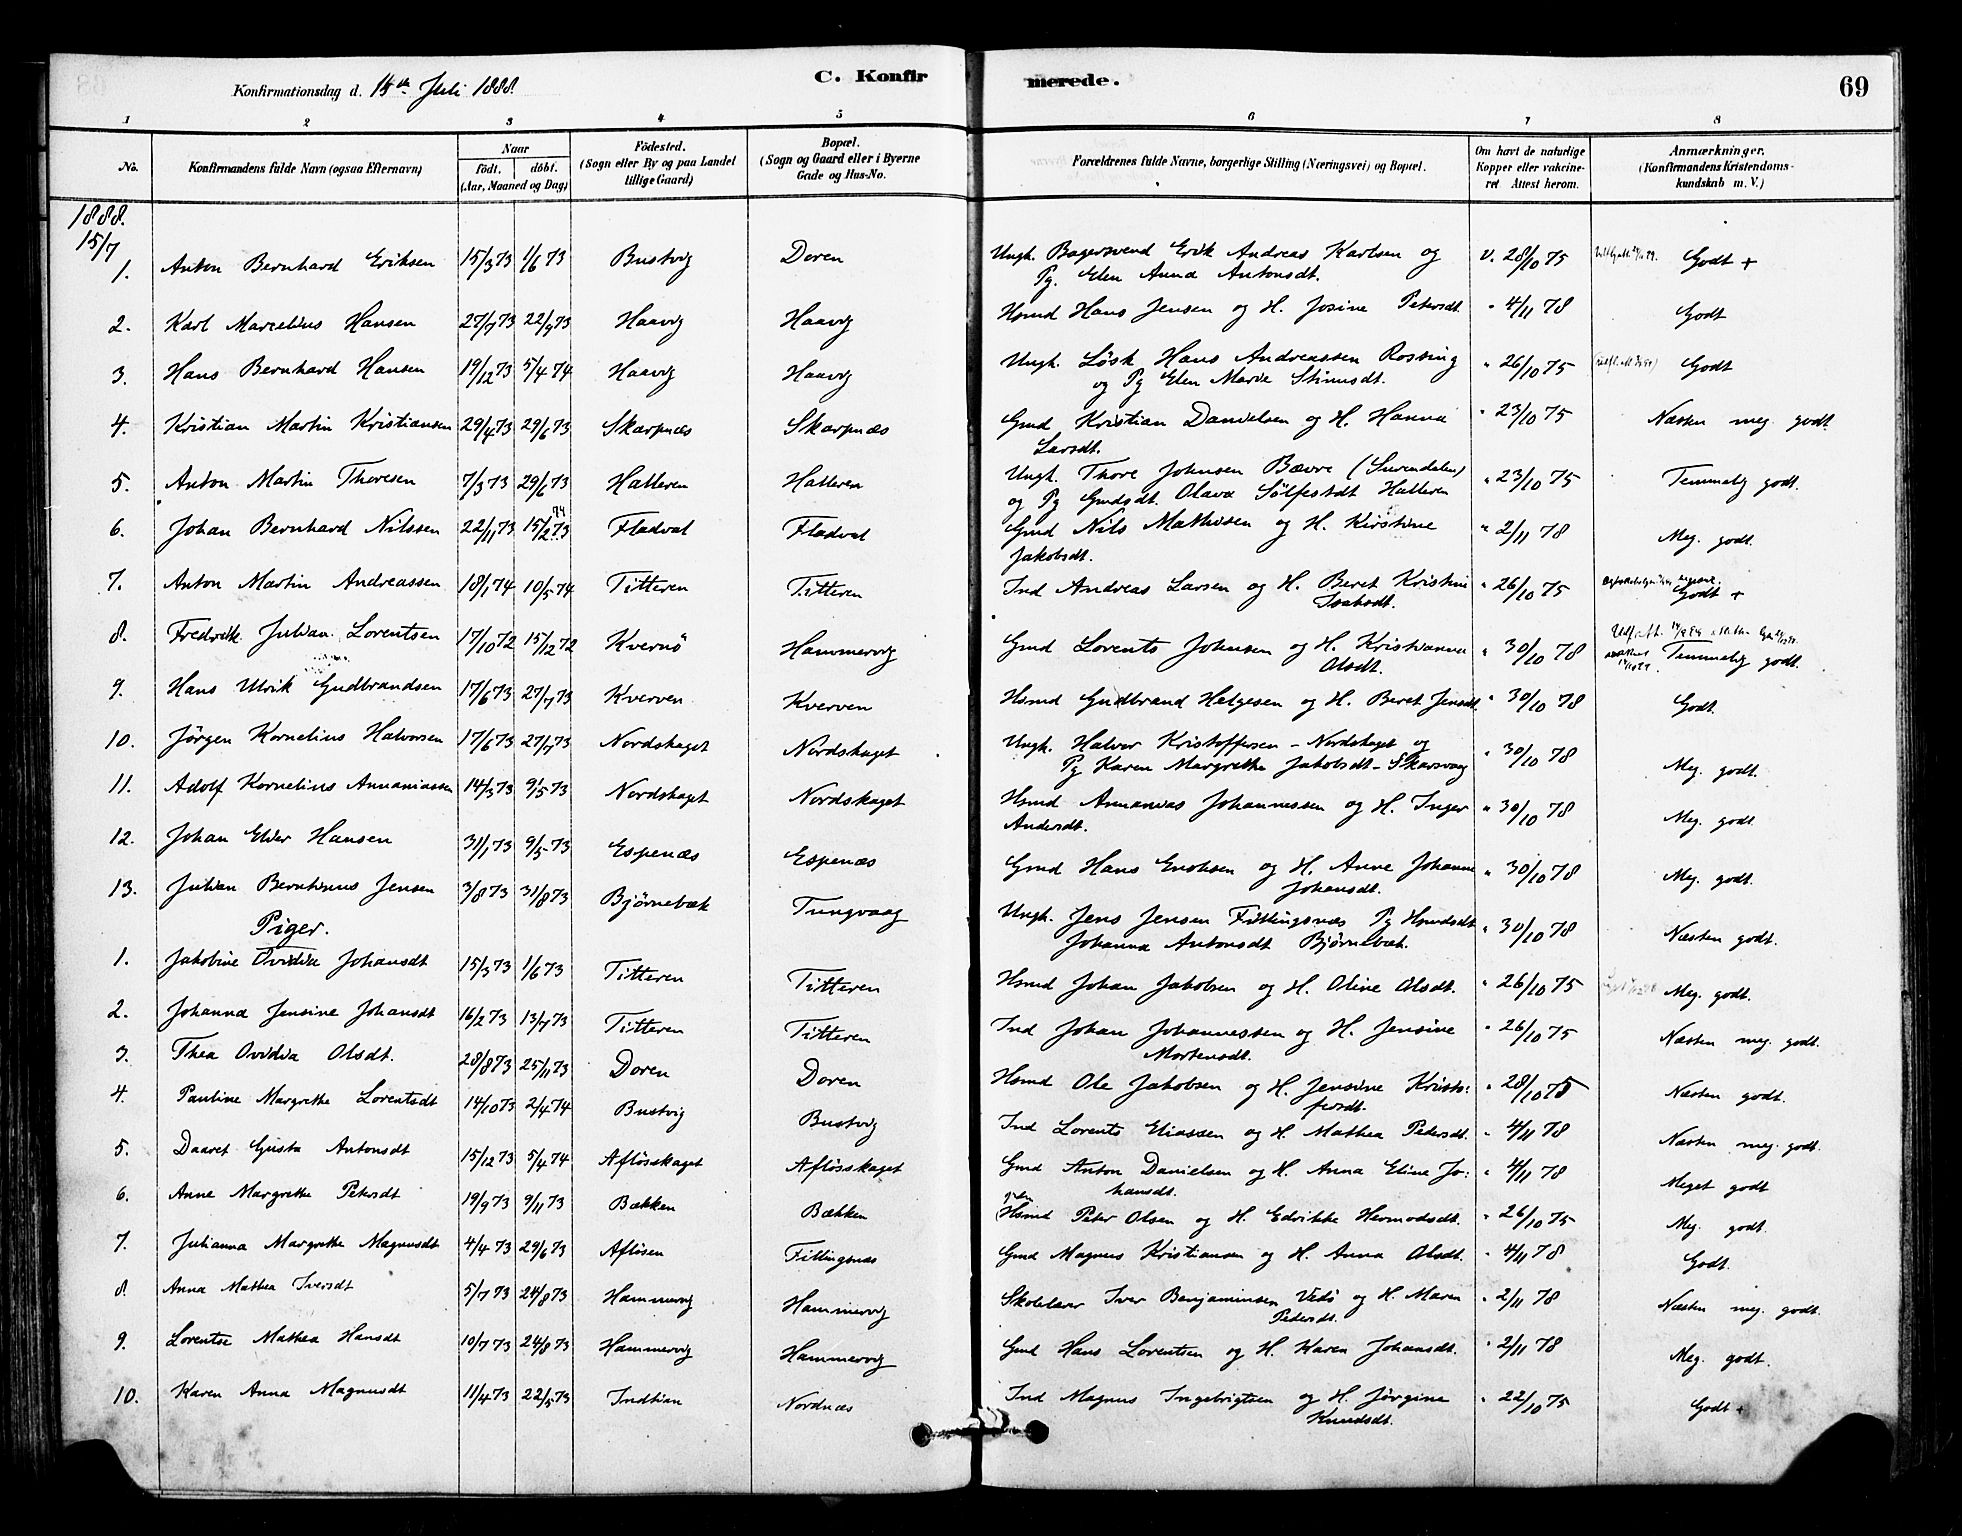 Konfirmationsdag d. 15de Juli 1888. C. Konfirmerede. 69
1 2 3 4 5 6 7 8
No. Konfirmandens fulde Navn (ogsaa Efternavn) Naar födt. döbt. (Aar, Maaned og Dag) Födested. (Sogn eller By og paa Landet tillige Gaard) Bopæl. (Sogn og Gaard eller i Byerne Gade og Hus-No. Forældrenes fulde Navne, borgerlige Stilling (Næringsvei) og Bopæl. Om havt de naturlige Kopper eller vakcineret Attest herom. Anmærkninger. (Konfirmandens Kristendomskundskab m. V.)
1888.
15/7
1. Anton Bernhard Eriksen 15/3 73 1/6 73 Bustvig Doren Ungk. Bagersvend Erik Andreas Karlsen og V. 28/10 75 Godt +
Pg. Elen Anna Antonsdt.
2. Karl Marcelius Hansen 27/7 73 22/9 73 Haavig Haavig Hsmd Hans Jensen og H. Josine Petersdt " 4/11 78 Godt
3. Hans Bernhard Hansen 19/12 73 5/4 74 Haavig Haavig Ungk. Løsk Hans Andreassen Rossing " 26/10 75 Godt
og Pg Elen Marie Simusdt.
4. Kristian Martin Kristiansen 29/4 73 29/6 73 Skarpnæs Skarpnæs Gmd Kristian Danielsen og H. Hanna " 23/10 75 Næsten meg. godt.
Larsdt.
5. Anton Martin Thoresen 7/3 73 29/6 73 Hatteren Hatteren Ungk. Thore Johnsen Bævre (Surendalen) " 23/10 75 Temmelig godt.
og Pg Gmdsdt. Olava Sølfestdt Hatteren
6. Johan Bernhard Nilssen 22/11 73 15/2 73 74 Fladval Fladval Gmd Nils Mathisen og H. Kirstine " 2/11 78 Meg. godt.
Jakobsdt.
7. Anton Martin Andreassen 18/1 74 10/5 74 Titteren Titteren Ind Andreas Larsen og H. Beret Kristine " 26/10 75 Godt +
Isaksdt.
8. Fredrik Julian Lorentsen 17/10 72 15/12 72 Kvernö Hammervig Gmd Lorents Johnsen og H. Kristianna " 30/10 78 Temmelig godt.
Olsdt.
9. Hans Ulrik Gudbrandsen 17/6 73 27/7 73 Kverven Kverven Hsmd Gudbrand Helgesen og H. Beret Jensdt. " 30/10 78 Godt.
10. Jörgen Kornelius Halvorsen 17/6 73 27/7 73 Nordskaget Nordskaget Ungk. Halvor Kristoffersen - Nordskaget og " 30/10 78 Meg. godt.
Pg Karen Margrethe Jakobsdt - Skarsvaag
11. Adolf Kornelius Annaniassen 14/3 73 9/5 73 Nordskaget Nordskaget Hsmd Annanias Johannessen og H. Inger " 30/10 78 Meg. godt.
Andersdt.
12. Johan Elder Hansen 31/1 73 9/5 73 Espenæs Espenæs Gmd Hans Enoksen og H. Anne Johanne " 30/10 78 Meg. godt.
Johansdt.
13. Julian Berntinus Jensen 3/8 73 31/8 73 Bjørnebæk Tungvaag Ungk. Jens Jensen Fillingsnæs Pg Hsmdsdt " 30/10 78 Næsten godt.
Johanna Antonsdt Bjørnebæk.
Piger.
1. Jakobine Ovidia Johansdt 15/3 73 1/6 73 Titteren Titteren Hsmd Johan Jakobsen og H. Oline Olsdt. " 26/10 75 Meg. godt.
2. Johanna Jensine Johansdt 16/2 73 13/7 73 Titteren Titteren Ind Johan Johannessen og H. Jensine " 26/10 75 Næsten meg. godt.
Mortensdt.
3. Thea Ovidia Olsdt. 28/8 73 25/11 73 Doren Doren Hsmd Ole Jakobsen og H. Jensine Kristo- " 28/10 75 Næsten godt.
fersdt.
4. Pauline Margrethe Lorentsdt 14/10 73 2/4 74 Bustvig Bustvig Ind Lorents Eliassen og H. Mathea Petersdt. " 4/11 78 Næsten meg. godt.
5. Daaret Gusta Antonsdt 15/12 73 5/4 74 Aflösskaget Aflösskaget Gmd Anton Danielsen og H. Anna Eline Jo- " 4/11 78 Meget godt
hansdt.
6. Anne Margrethe Petersdt 19/9 73 9/11 73 Bækken Bækken Hsmd Peter Olsen og H. Edvikke Hermodsdt. " 26/10 75 Meg. godt.
7. Julianna Margrethe Magnusdt 4/4 73 29/6 73 Aflösen Fillingsnæs Gmd Magnus Kristiansen og H. Anna Olsdt. " 4/11 78 Godt.
8. Anna Mathea Iversdt 5/7 73 24/8 73 Hammervig Hammervig Skolelærer Iver Benjaminsen Vedö og H. Maren " 2/11 78 Næsten meg. godt.
Petersdt.
9. Lorentse Mathea Hansdt 10/7 73 24/8 73 Hammervig Hammervig Gmd Hans Lorentsen og H. Karen Johansdt. " 2/11 78 Meg. godt.
10. Karen Anna Magnusdt 11/4 73 22/5 73 Indtian Nordnæs Ind Magnus Ingebrigtsen og H. Jörgine " 22/10 75 Godt +
Knudsdt.